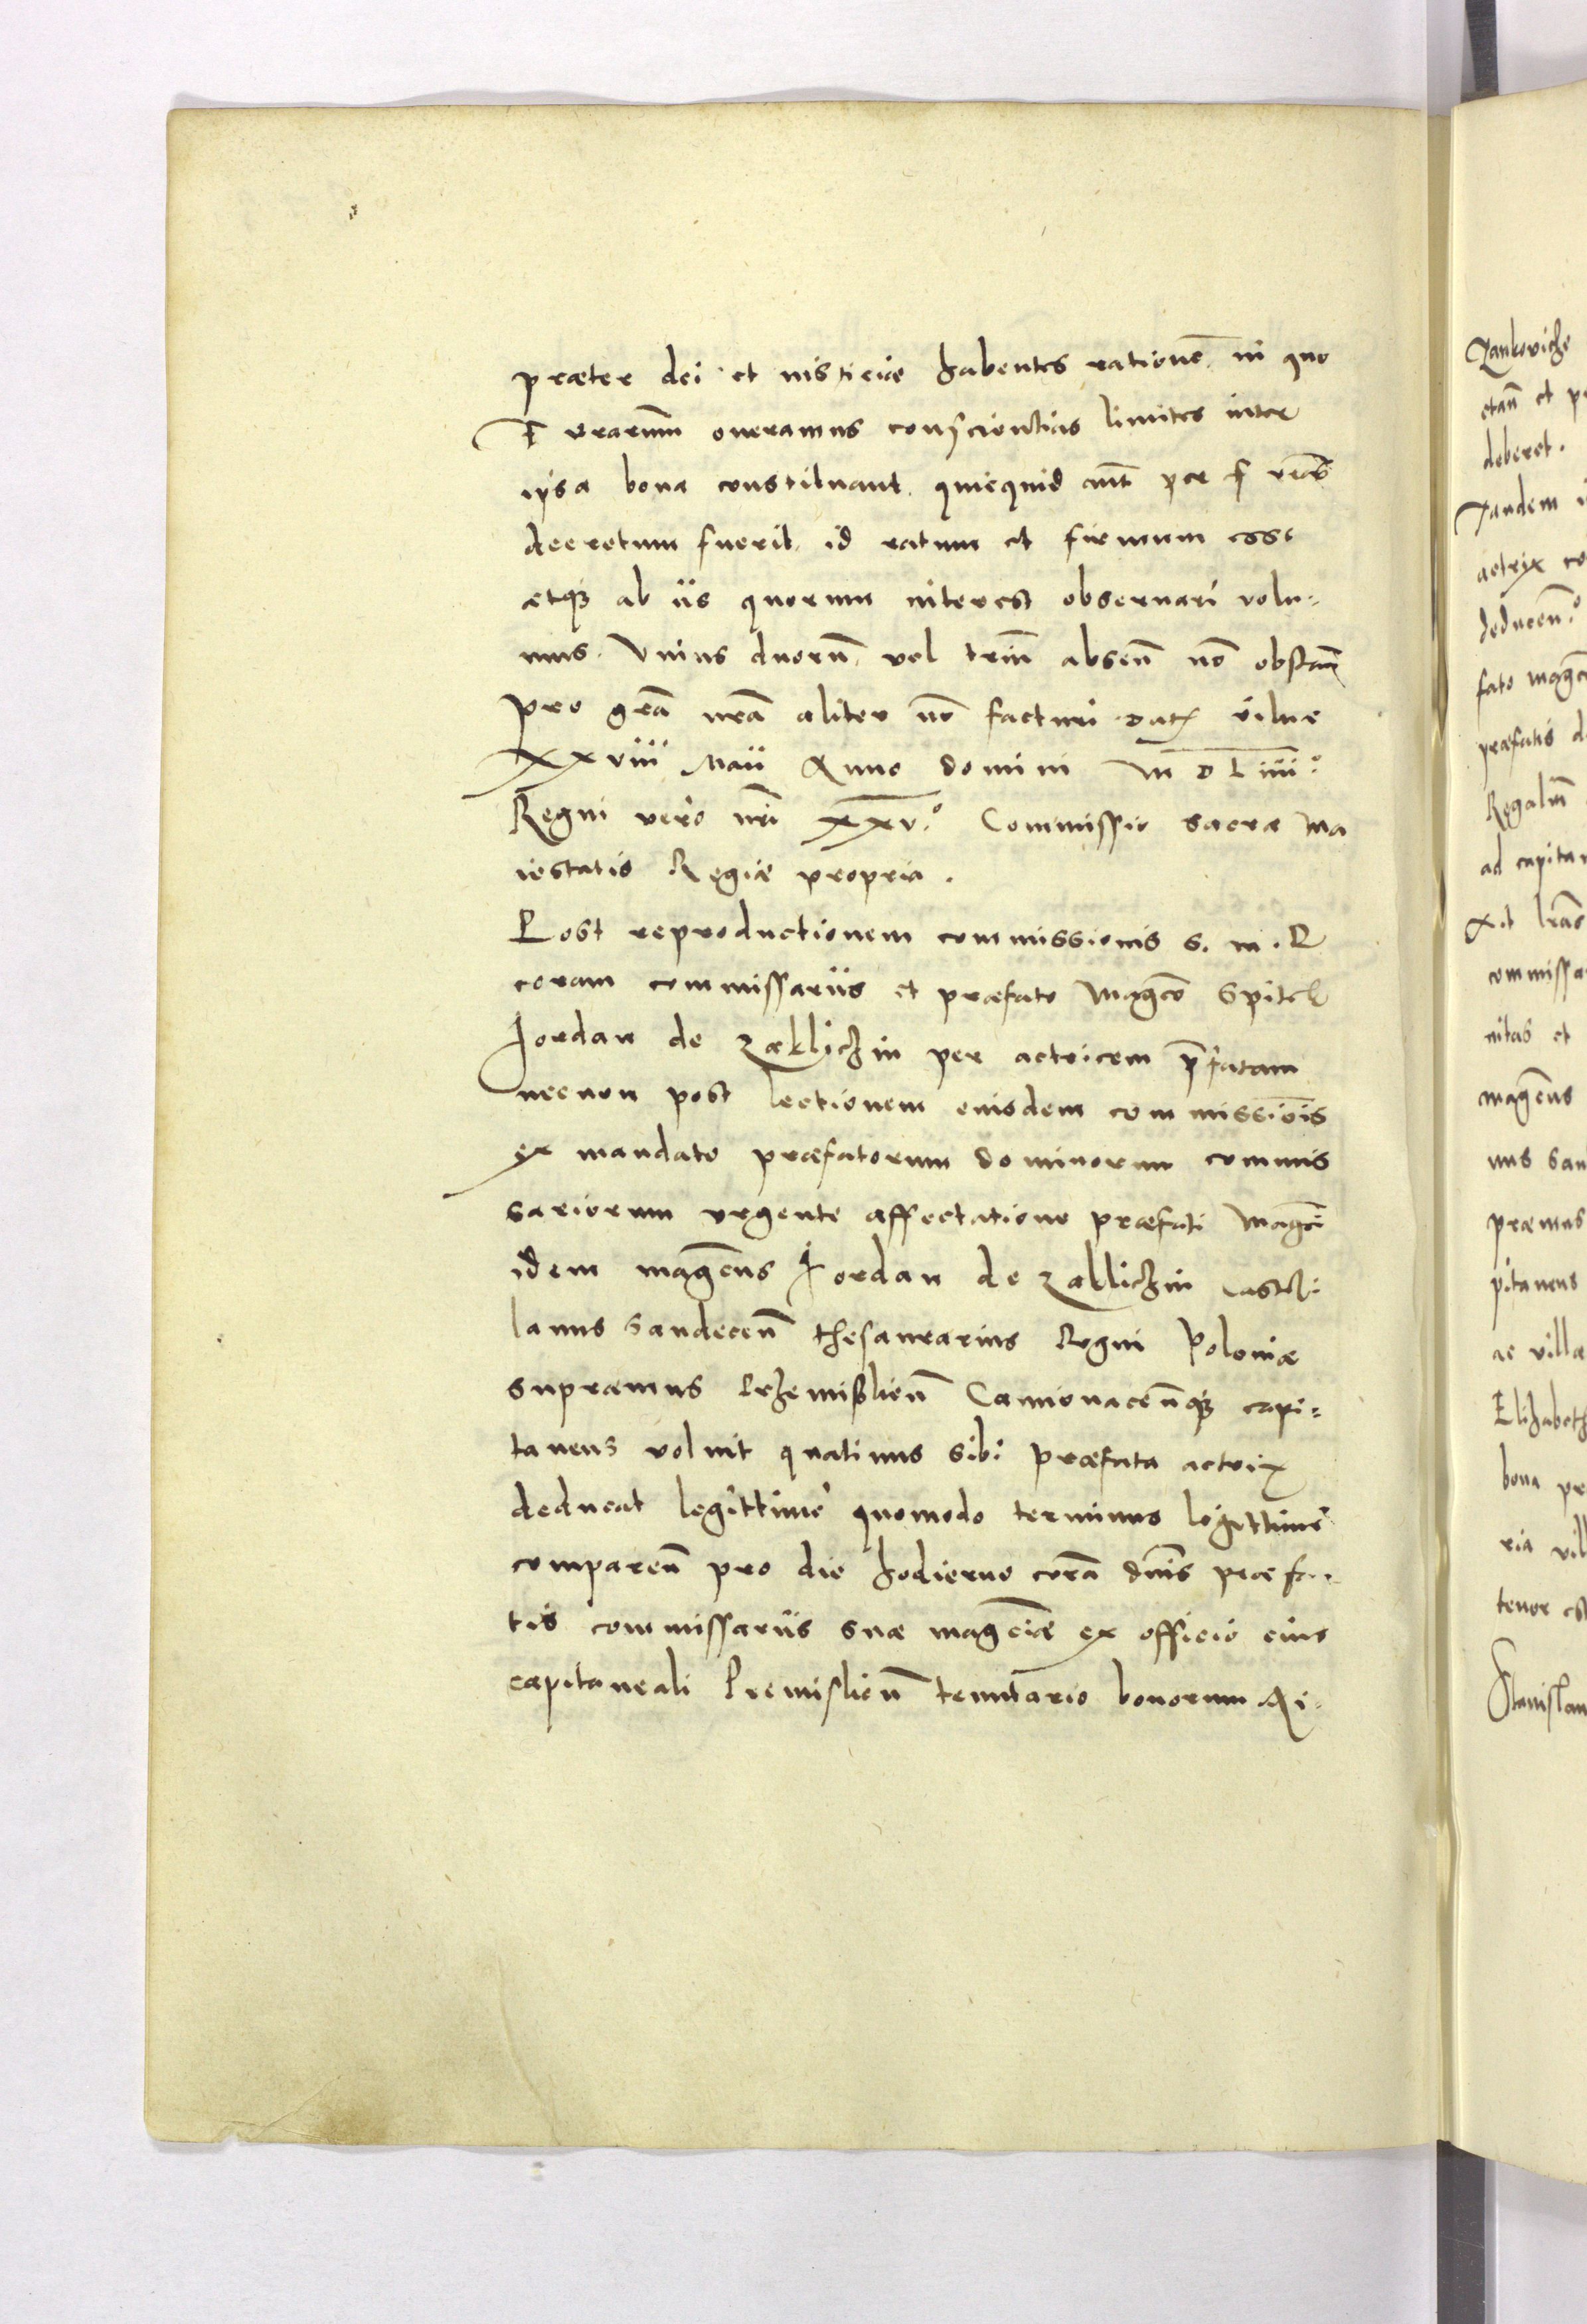 præter dei et iusticiæ habentes rationē in quo
F vrarum̄ oneramus conscientias limites inter
ipsa bona constituant quicquid aut̄ per F vr̄as
decretum fuerit id ratum et firmum esse
atq3 ab iis quorum interest obseruari volu=
mus. Vnius duorū vel triū absen̄ nō obstan̄
pro gr̄a nr̄a aliter nō facturi Dat vilnæ
XXVIII Maii Anno domini M D L IIII.º
Regni vero nr̄i XXV.º Commissio sacræ Ma
iestatis Regiæ propria.
Post reproductionem commissionis S. M. R
coram commissariis et præfato Magc̄o Spitek
Jordan de Zaklichin per actricem p̄fatam
necnon post lectionem eiusdem commissiōis
ex mandato præfatorum dominorum commis
sariorum vrgente affectatione præfati Magc̄i
idem magc̄us Jordan de Zaklichin Castel=
lanus Sandecen̄ thesaurarius Regni Poloniæ
supræmus Prhemislien̄ Camionacen̄q3 capi=
taneus voluit quatinus sibi præfata actrix
deducat legittime quomodo terminus legittimè
comparen̄ pro die hodierno corā dn̄is præfa=
tis commissariis suæ magc̄iæ ex officio eius
capitaneali Premislien̄ tenutario bonorum Ri=
Jankoviche
etan̄ et
deberet.
Tandem
actrix
deducen̄.º
fato magc̄o
præfatis
Regalium
ad capitan
xit lr̄as
commissa
nitas et
magc̄us
nus San
præmus
pitaneus
ac villa
Elizabeth
bona
ria
tenor est
Stanislau